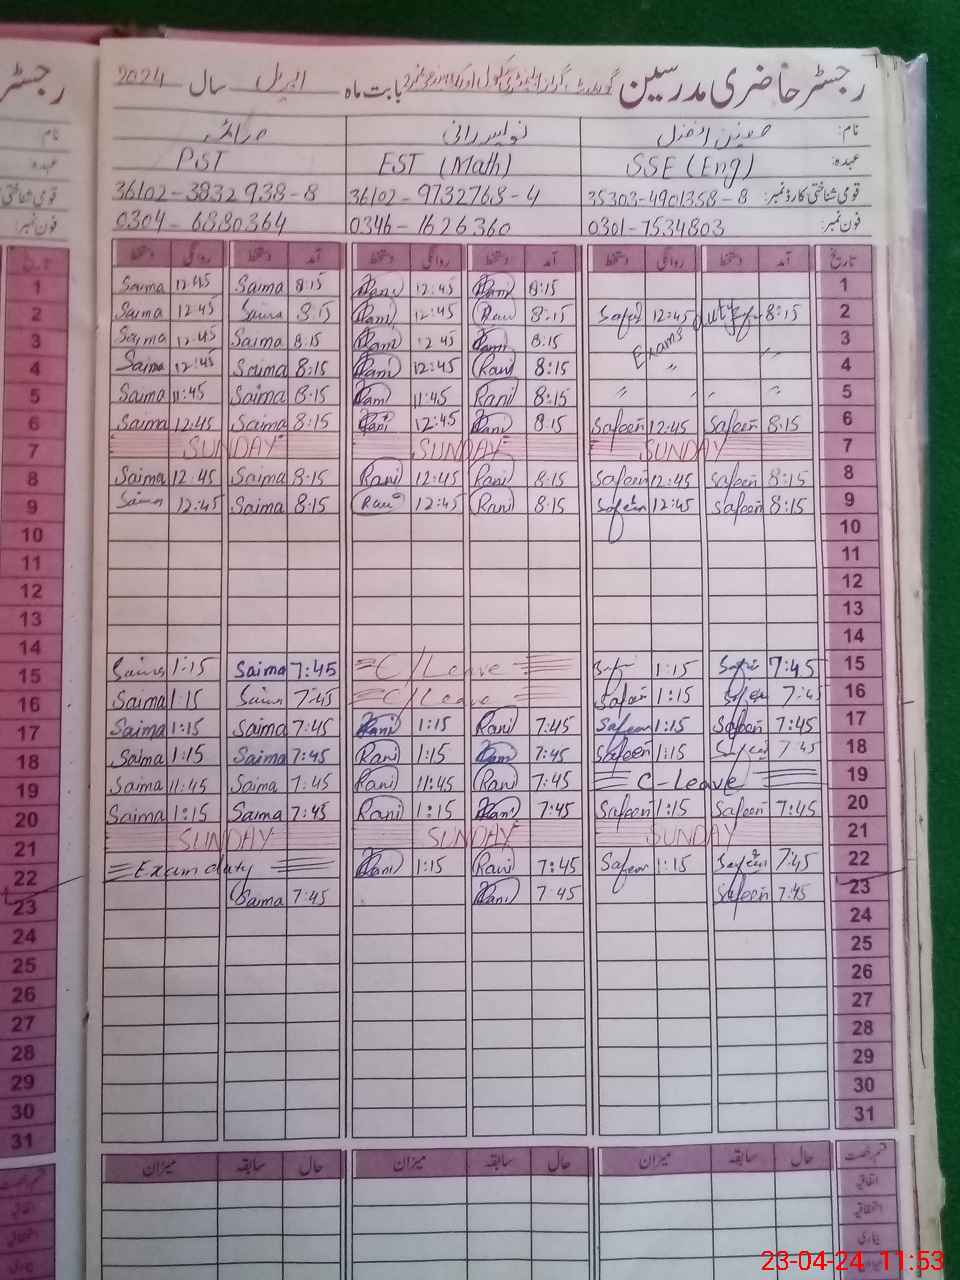 رجسٹر حاضری مدرسین بابت ماہ اپریل سال 2024
نام:
عہدہ: SSE (Eng) EST (Math) PST
قومی شناختی کارڈ نمبر: 35303-4901358-8 36102-9732768-4 36102-3832938-8
فون نمبر: 0301-7534803 0346-1626360 0304-6880364
تاریخ آمد دستخط روانگی دستخط آمد دستخط روانگی دستخط آمد دستخط روانگی دستخط
Saima 12:45 Saima 8:15 Rani 12:45 Rani 8:15 1
Saima 12:45 Saima 8:15 Rani 12:45 Rani 8:15 12:45 duty 8:15 2
Saima 12:45 Saima 8:15 Rani 12:45 Rani 8:15 Exams 〃 3
Saima 12:45 Saima 8:15 Rani 12:45 Rani 8:15 〃 4
Saima 11:45 Saima 8:15 Rani 11:45 Rani 8:15 〃 〃 〃 〃 5
Saima 12:45 Saima 8:15 Rani 12:45 Rani 8:15 Safeen 12:45 Safeen 8:15 6
SUNDAY SUNDAY SUNDAY 7
Saima 12:45 Saima 8:15 Rani 12:45 Rani 8:15 Safeen 12:45 Safeen 8:15 8
Saima 12:45 Saima 8:15 Rani 12:45 Rani 8:15 Safeen 12:45 Safeen 8:15 9
10
11
12
13
14
Saima 1:15 Saima 7:45 C/Leave 1:15 7:45 15
Saima 1:15 Saima 7:45 C/Leave Safeen 1:15 Safeen 7:45 16
Saima 1:15 Saima 7:45 Rani 1:15 Rani 7:45 Safeen 1:15 Safeen 7:45 17
Saima 1:15 Saima 7:45 Rani 1:15 Rani 7:45 Safeen 1:15 Safeen 7:45 18
Saima 11:45 Saima 7:45 Rani 11:45 Rani 7:45 C-Leave 19
Saima 1:15 Saima 7:45 Rani 1:15 Rani 7:45 Safeen 1:15 Safeen 7:45 20
SUNDAY SUNDAY SUNDAY 21
Exam duty Rani 1:15 Rani 7:45 Safeen 1:15 Safeen 7:45 22
Saima 7:45 Rani 7:45 Safeen 7:45 23
24
25
26
27
28
29
30
31
حال سابقہ میزان حال سابقہ میزان حال سابقہ میزان
اتفاقیہ
بیماری
رجسٹر
نام
عہدہ
فون نمبر:
تاریخ
1
2
3
4
5
6
7
8
9
10
11
12
13
14
15
16
17
18
19
20
21
22
23
24
25
26
27
28
29
30
31
23-04-24 11:53